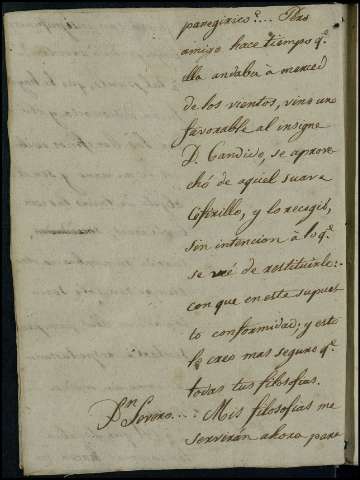 panegirico.... Pero
amigo hace tiempo q.e
ella andaba à merced
de los vientos, vino uno
favorable al insigne
D. Candido, se aprove
chó de aquel suave
Cefirillo, y lo recogió,
sin intencion à lo q.e
se vé de restituirle:
con que en este supues
to conformidad, y esto
lo creo mas seguro q.e
todas tus filosofias.
D.n Severo.... Mis filosofias me
serviràn ahora para